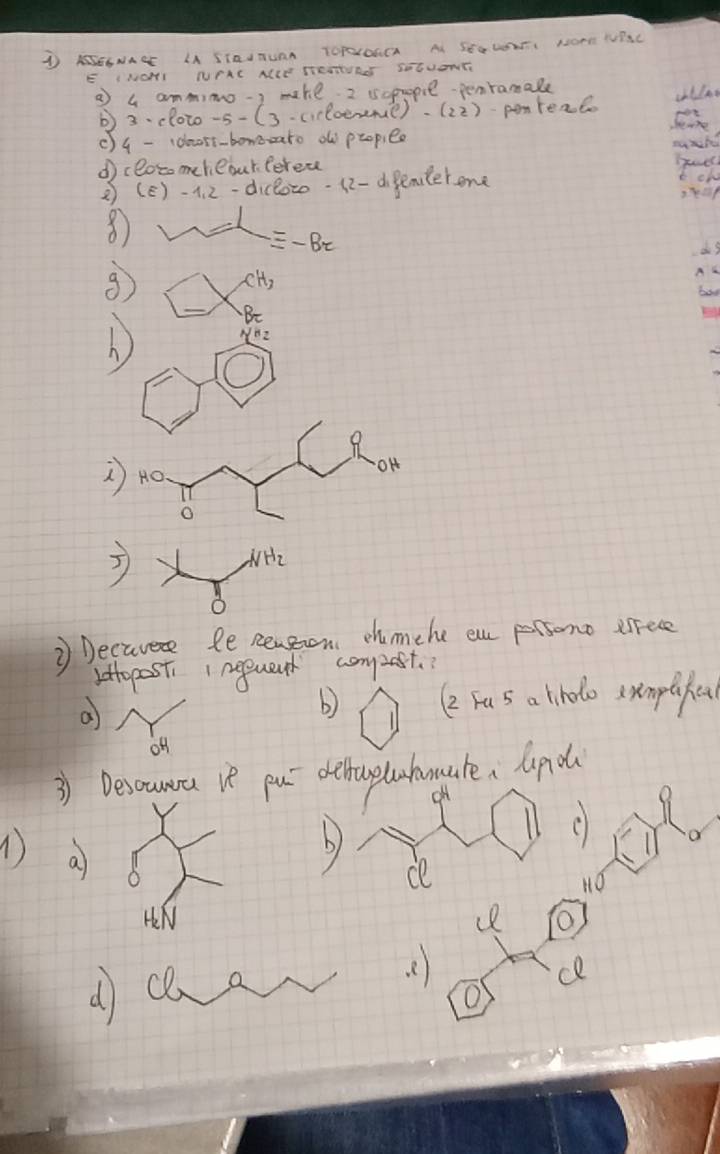 1) ASSEGNARE LA STRUTTURA TOPOLOGICA AI SEGUENTI NOMI IUPAC
E I NOMI IUPAC ALLE STRUTTURE SEGUENTI
a) 4 ammino - 3 metil - 2 isopropil - pentanale
b) 3 - cloro - 5 - (3 - cicloesenil) - (2Z) -
c) 4 - benzoato di propile
d) clorometilbutiletere
e) (E) - 1,2 - dicloro - 1,2 - difeniletene
f) Br
g) CH3
Br
h) NH2
i) HO O O OH
J) NH2
O
2) Descrivere le reazioni chimiche cui possono essere
sottoposti i seguenti composti:
a) OH b) (2 su 5 a titolo
3) Descrivere il più dettagliatamente i lipidi
1) a) O H2N b) OH Cl c) O O HO
d) Cl O e) Cl Cl